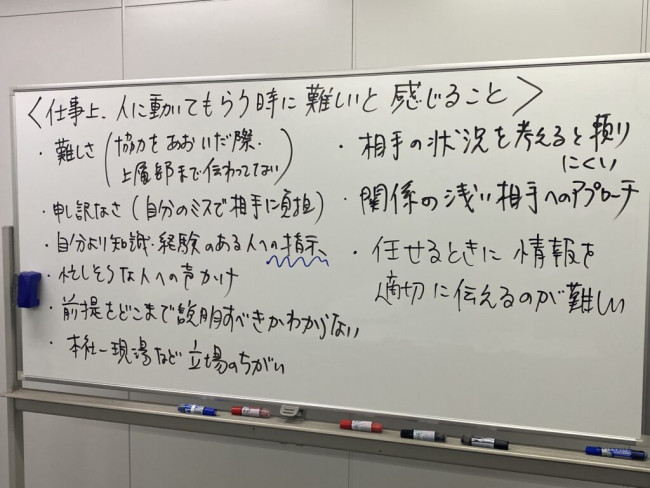 <仕事上、人に動いてもらう時に難しいと感じること>
・難しさ(協力をあおいだ際、
上層部まで伝わってない)
・申し訳なさ(自分のミスで相手に負担)
・自分より知識・経験のある人への指示
・忙しそうな人への声かけ
・前提をどこまで説明すべきかわからない
・本社ー現場など立場のちがい
・相手の状況を考えると頼り
にくい
・関係の浅い相手へのアプローチ
・任せるときに情報を
適切に伝えるのが難しい